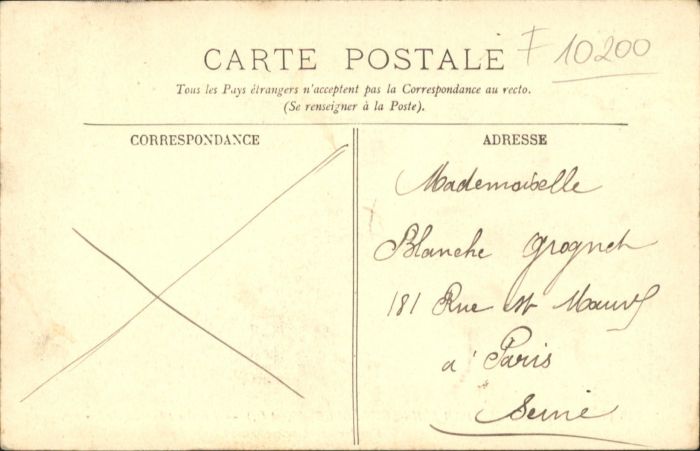 CARTE POSTALE
F 10200
Tous les Pays étrangers n'acceptent pas la Correspondance au recto.
(Se renseigner à la Poste).
CORRESPONDANCE
ADRESSE
Mademoiselle
Blanche Grognet
181 Rue St Maur
a Paris
Seine